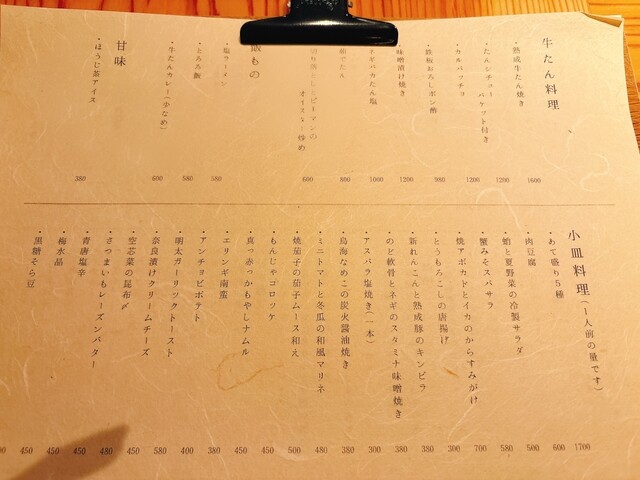 牛たん料理
・熟成牛たん焼き 1600
・たんシチュー バケット付き 1200
・カルパッチョ 1200
・鉄板おろしポン酢 980
味噌漬け焼き 1200
ネギバカたん塩 1000
茹でたん 800
切り落としとピーマンの
オイスター炒め 600
飯もの
・塩ラーメン 580
・とろろ飯 580
・牛たんカレー(少なめ) 600
甘味
・ほうじ茶アイス 380
小皿料理(1人前の量です)
・あて盛り5種 1700
・肉豆腐 600
と夏野菜の冷製サラダ 500
・蟹みそスパサラ 580
・焼アボカドとイカのからすみがけ 700
・とうもろこしの唐揚げ 300
・新れんこんと熟成豚のキンピラ 380
・のど軟骨とネギのスタミナ味噌焼き 380
・アスパラ塩焼き(一本) 300
・鳥海なめこの炭火醤油焼き 380
・ミニトマトと冬瓜の和風マリネ 480
・焼茄子の茄子ムース和え 500
・もんじゃコロッケ 450
・真っ赤っかもやしナムル 450
・エリンギ南蛮 380
・アンチョビポテト 400
・明太ガーリックトースト 580
・奈良漬けクリームチーズ 480
・空芯菜の昆布〆 480
・さつまいもレーズンバター 450
・青唐塩辛 450
・梅水晶 450
・黒糖そら豆